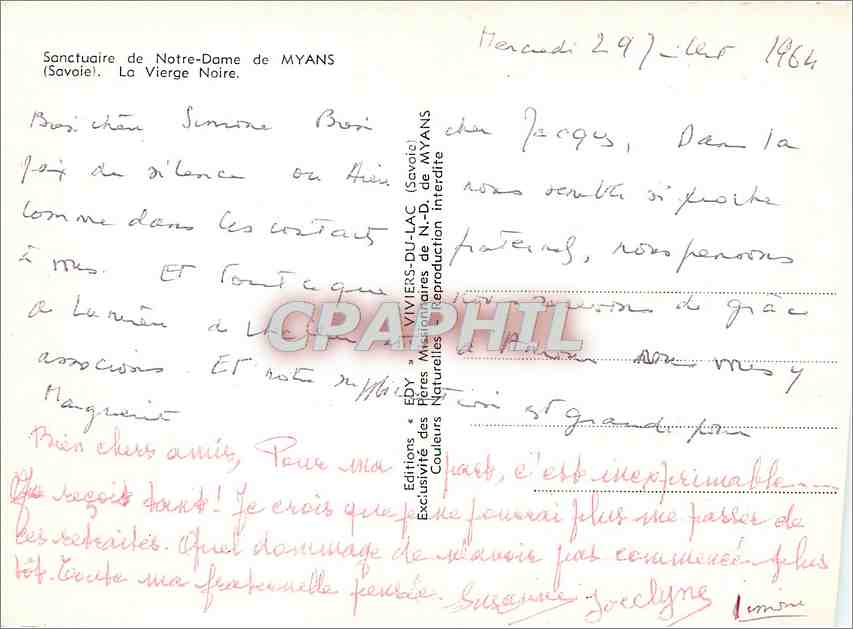 Sanctuaire de Notre-Dame de MYANS
(Savoie). La Vierge Noire.
Mercredi 29 Juillet 1964
Bien chère Simone Bien cher Jacques, Dans la
paix du silence où Dieu nous semble si proche
comme dans les contacts fraternels, nous pensons
à vous. Et tout ce que nous recevons de grâce
de lumière d'Amour nous vous y
associons. Et notre supplication est grande pour
Marguerite
Bien chers amis, Pour ma part, c'est inexprimable....
Je reçois tant! Je crois que je ne pourrai plus me passer de
ces retraites. Quel dommage de n'avoir pas commencé plus
tôt. Toute ma fraternelle pensée. Suzanne Jocelyne Simone
Editions « EDY » VIVIERS-DU-LAC (Savoie)
Exclusivité des Pères Missionnaires de N.-D. de MYANS
Couleurs Naturelles - Reproduction interdite
CPAPHIL